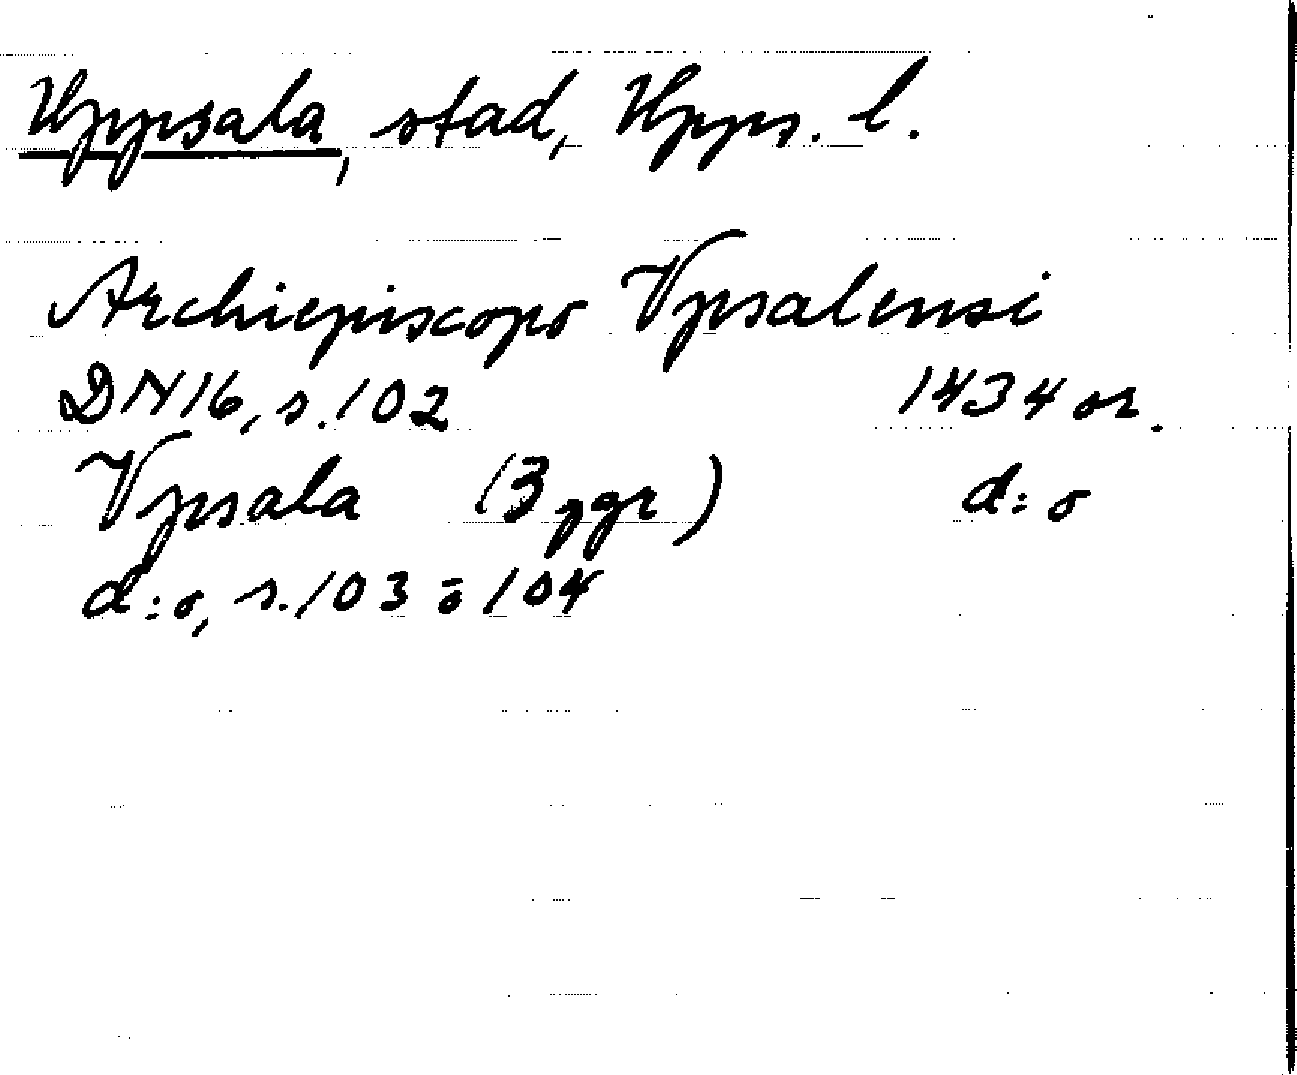 Uppsala, stad, Upps. l.
Archiepiscopo Vpsalensi
DN 16, s. 102 1434 or.
Vpsala (3 ggr) d:o
d:o, s. 103 o 104